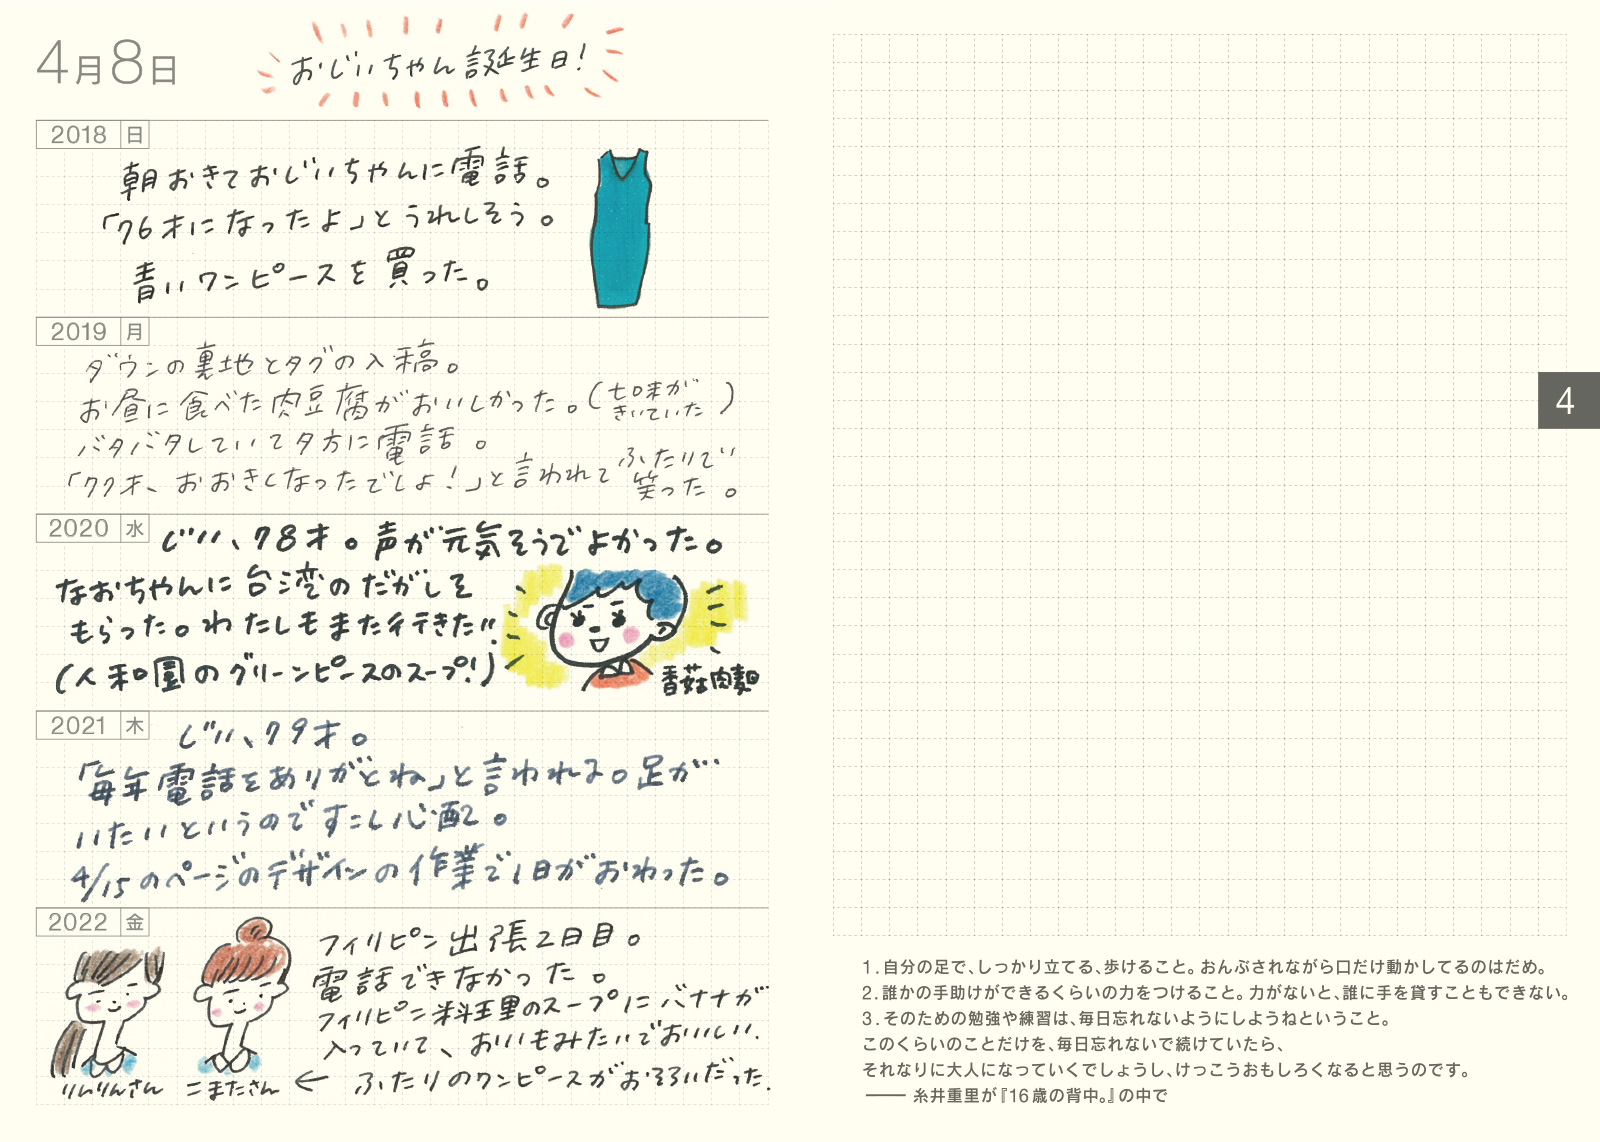 4月8日
おじいちゃん誕生日!
2018 日
朝おきておじいちゃんに電話。
「76才になったよ」とうれしそう。
青いワンピースを買った。
2019 月
ダウンの裏地とタグの入稿。
お昼に食べた肉豆腐がおいしかった。(七味がきいていた)
バタバタしていて夕方に電話。
「77才、おおきくなったでしょ!」と言われてふたりで笑った。
2020 水
じいい、78才。声が元気そうでよかった。
なおちゃんに台湾のだがしを
もらった。わたしもまた行きたい!
(人和園のグリーンピースのスープ!)
香菇肉麵
2021 木
じいい、79才。
「毎年電話をありがとね」と言われる。足が
いたいというのですこし心配。
4/15のページのデザインの作業で1日がおわった。
2022 金
フィリピン出張2日目。
電話できなかった。
フィリピン料理のスープにバナナが
入っていて、おいもみたいでおいしい.
ふたりのワンピースがおそろいだった.
りんりんさん
こまたさん ←
4
1.自分の足で、しっかり立てる、歩けること。おんぶされながら口だけ動かしてるのはだめ。
2.誰かの手助けができるくらいの力をつけること。力がないと、誰に手を貸すこともできない。
3.そのための勉強や練習は、毎日忘れないようにしようねということ。
このくらいのことだけを、毎日忘れないで続けていたら、
それなりに大人になっていくでしょうし、けっこうおもしろくなると思うのです。
—— 糸井重里が『16歳の背中。』の中で